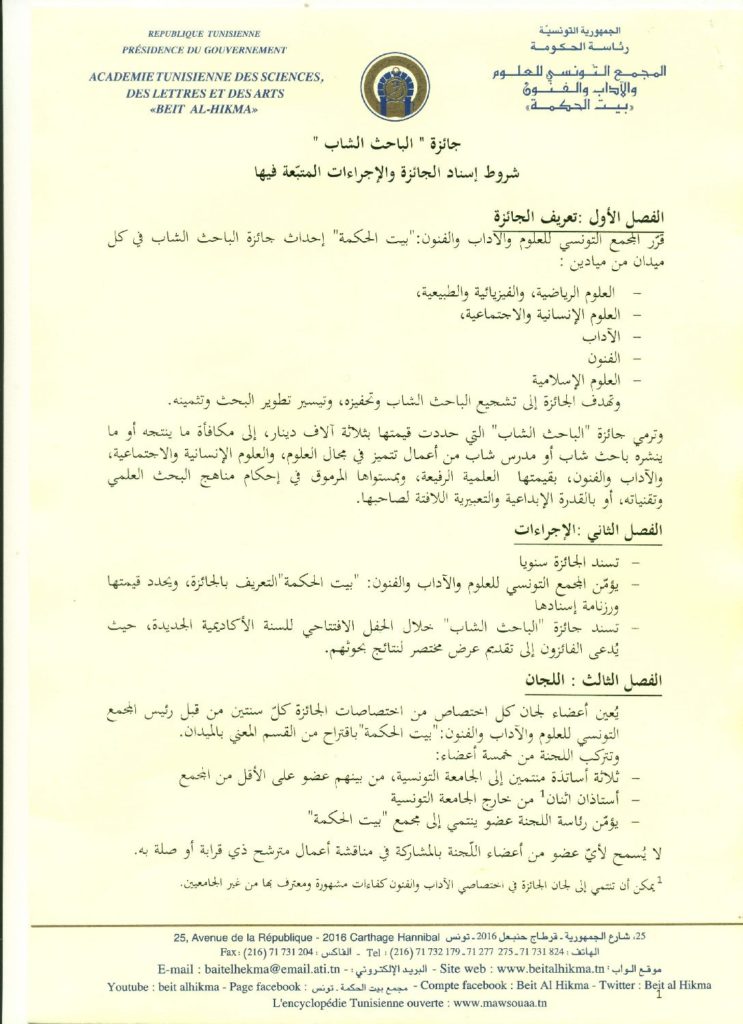 REPUBLIQUE TUNISIENNE
PRÉSIDENCE DU GOUVERNEMENT
ACADEMIE TUNISIENNE DES SCIENCES,
DES LETTRES ET DES ARTS
«BEIT AL-HIKMA»
الجمهورية التونسيّة
رئاسة الحكومة
المجمع التونسي للعلوم
والآداب والفنون
«بيت الحكمة»
جائزة " الباحث الشاب "
شروط إسناد الجائزة والإجراءات المتبّعة فيها
الفصل الأول :تعريف الجائزة
قرّر المجمع التونسي للعلوم والآداب والفنون:"بيت الحكمة" إحداث جائزة الباحث الشاب في كل
ميدان من ميادين :
– العلوم الرياضية، والفيزيائية والطبيعية،
– العلوم الإنسانية والاجتماعية،
– الآداب
– الفنون
– العلوم الإسلامية
وتهدف الجائزة إلى تشجيع الباحث الشاب وتحفيزه، وتيسير تطوير البحث وتثمينه.
وترمي جائزة "الباحث الشاب" التي حددت قيمتها بثلاثة آلاف دينار، إلى مكافأة ما ينتجه أو ما
ينشره باحث شاب أو مدرس شاب من أعمال تتميز في مجال العلوم، والعلوم الإنسانية والاجتماعية،
والآداب والفنون، بقيمتها العلمية الرفيعة، وبمستواها المرموق في إحكام مناهج البحث العلمي
وتقنياته، أو بالقدرة الإبداعية والتعبيرية اللافتة لصاحبها.
الفصل الثاني :الإجراءات
– تسند الجائزة سنويا
– يؤمّن المجمع التونسي للعلوم والآداب والفنون: "بيت الحكمة"التعريف بالجائزة، ويحدد قيمتها
ورزنامة إسنادها
– تسند جائزة "الباحث الشاب" خلال الحفل الافتتاحي للسنة الأكاديمية الجديدة، حيث
يُدعى الفائزون إلى تقديم عرض مختصر لنتائج بحوثهم.
الفصل الثالث : اللجان
يُعين أعضاء لجان كل اختصاص من اختصاصات الجائزة كلّ سنتين من قبل رئيس المجمع
التونسي للعلوم والآداب والفنون:"بيت الحكمة"باقتراح من القسم المعني بالميدان.
وتتركب اللجنة من خمسة أعضاء:
– ثلاثة أساتذة منتمين إلى الجامعة التونسية، من بينهم عضو على الأقل من المجمع
– أستاذان اثنان¹ من خارج الجامعة التونسية
– يؤمّن رئاسة اللجنة عضو ينتمي إلى مجمع "بيت الحكمة"
لا يُسمح لأيّ عضو من أعضاء اللّجنة بالمشاركة في مناقشة أعمال مترشح ذي قرابة أو صلة به.
¹يمكن أن تنتمي إلى لجان الجائزة في اختصاصي الآداب والفنون كفاءات مشهورة ومعترف بها من غير الجامعيين.
25, Avenue de la République - 2016 Carthage Hannibal 25، شارع الجمهورية ـ قرطاج حنبعل 2016 ـ تونس
Fax : (216) 71 731 204 : الفاكس - Tel : (216) 71 732 179 - 71 277 275 - 71 731 824 : الهاتف
E-mail : baitelhekma@email.ati.tn - البريد الإلكتروني : - Site web : www.beitalhikma.tn : موقع الواب
Youtube : beit alhikma - Page facebook : مجمع بيت الحكمة . تونس - Compte facebook : Beit Al Hikma - Twitter : Beit al Hikma
L'encyclopédie Tunisienne ouverte : www.mawsouaa.tn
1